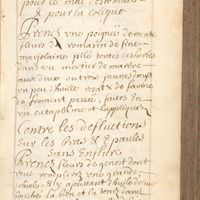 pour le mal destomac
& pour la colique
Prenez une poignée de menthe
fleurs de romarin de fine
marjolaine pilé toutes ces herbes
dans un mortier de marbre
aux deux, ou trois jaunes doeufs
un peu dhuille rosat & de farine
de froment passée, faites en
un cataplasme et lappliquez
Contre les defluctions
sur les bras & Epaules
sans Enflure
Prenez fleurs de genest dont
vous remplirez une grande
phiole & y ajoutant dhuille
bouchez la bien et la tenez dans